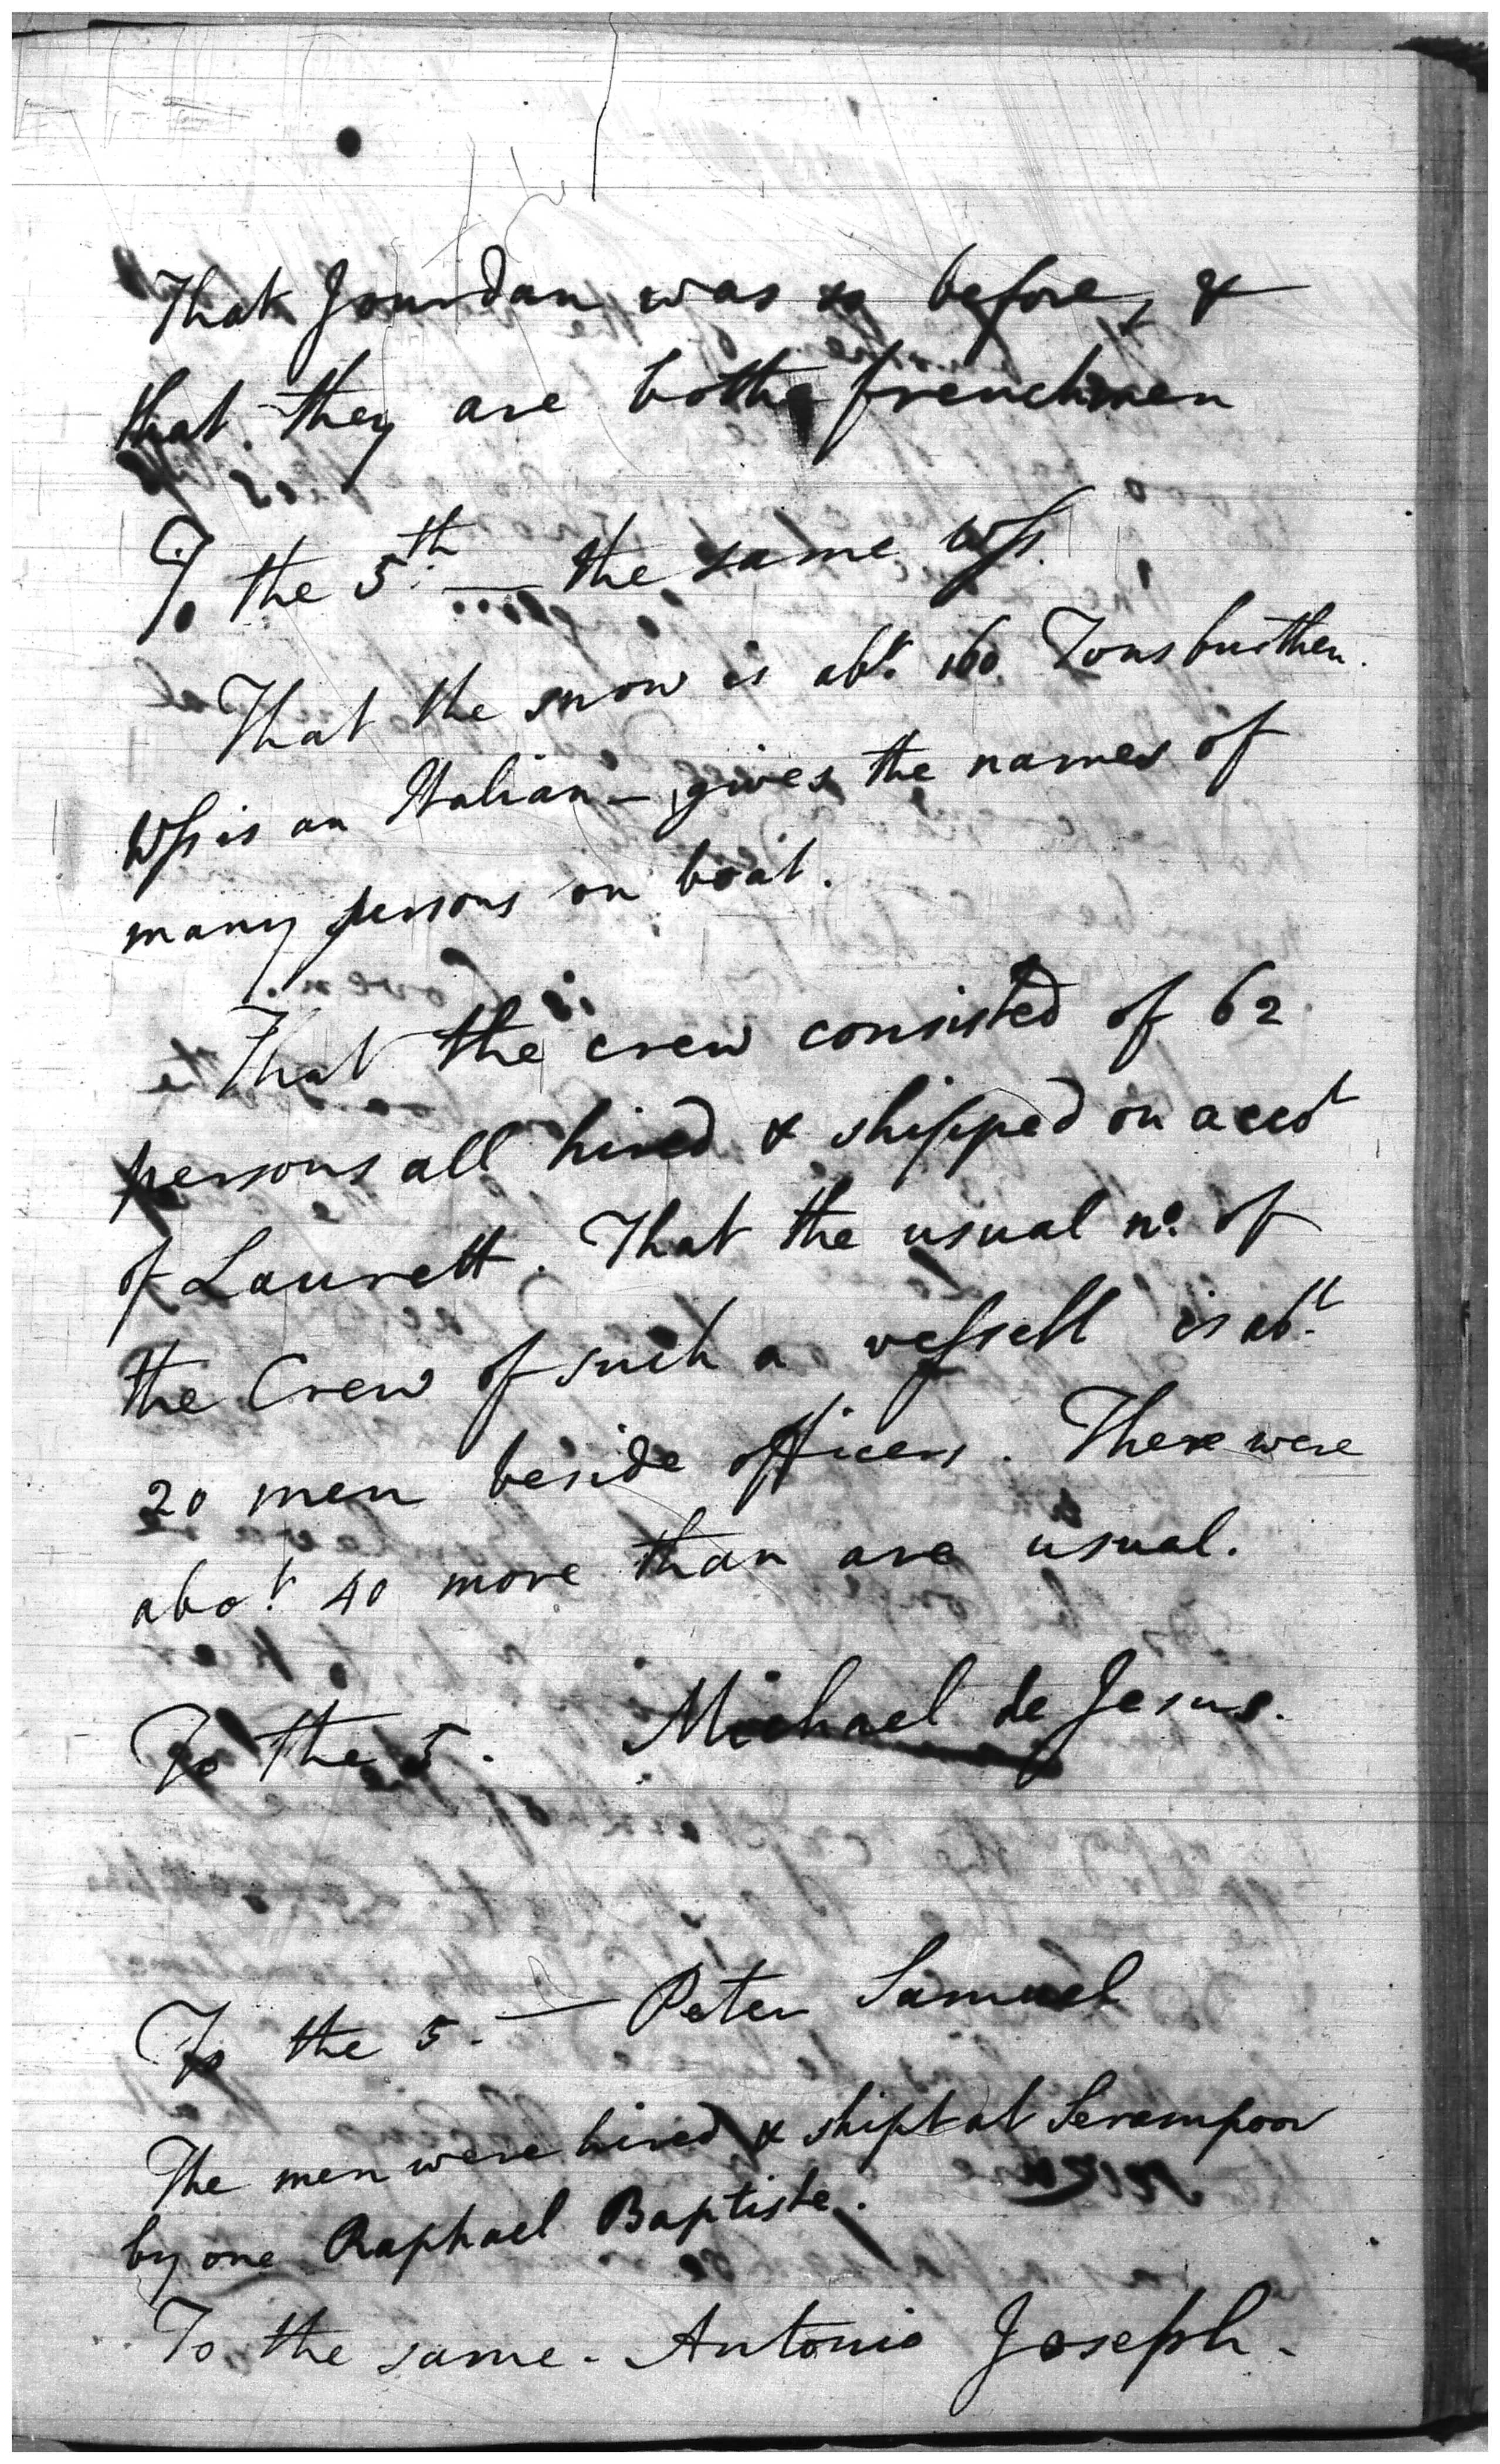 That Jourdan was so before, &
that they are both frenchmen
To the 5th. — the same Wss.
That the snow is abt. 160 Tons burthen.
Wss is an Italian — gives the names of
many persons on boat.
That the crew consisted of 62
persons all hired & shipped on accot
of Laurett. That the usual no. of
the Crew of such a vessell is abt.
20 men beside officers. There were
abot. 40 more than are usual.
To the 5. Michael de Jesus.
To the 5. — Peter Samuel
The men were hired & shipt at Serampoor
by one Raphael Baptiste.
To the same - Antonio Joseph -